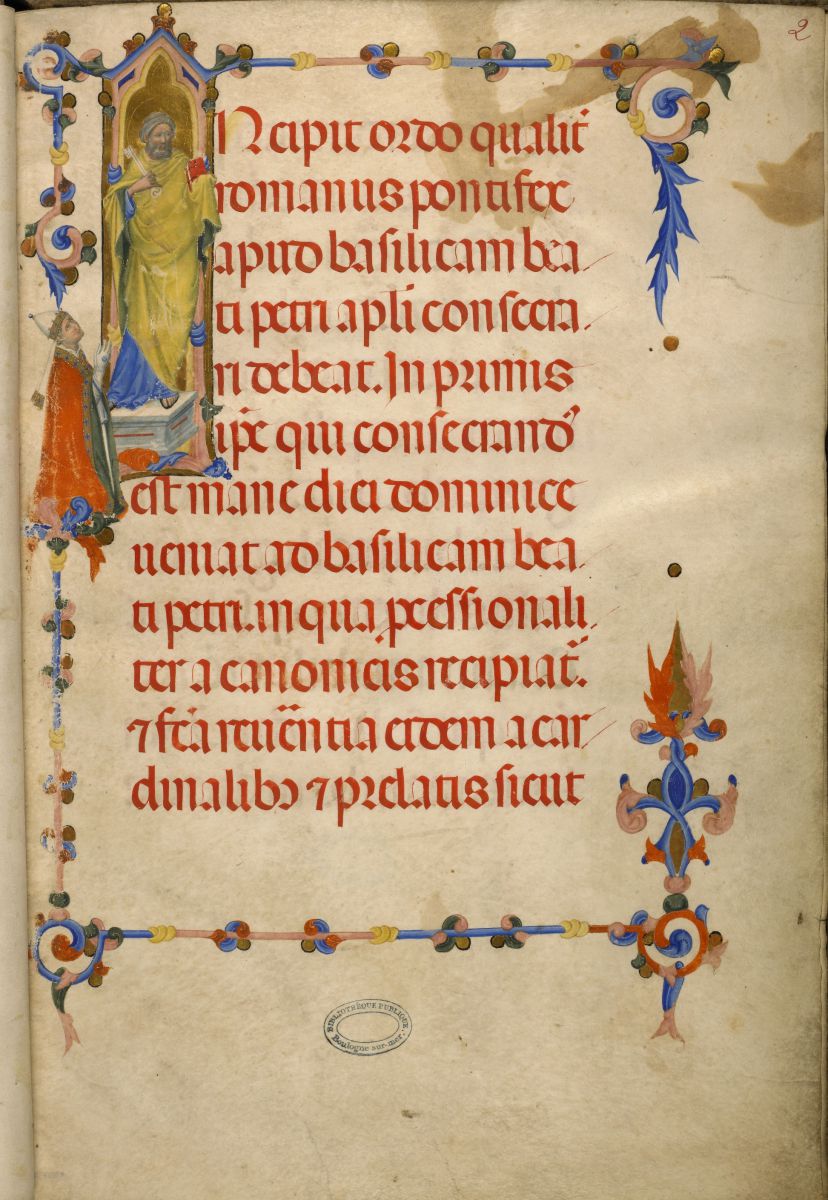 2
INcipit ordo qualit̄
romanus pontifex
apud basilicam bea
ti petri apl̄i consecra
ri debeat. In primis
ip̄e qui consecrand᾽
est mane diei dominice
ueniat ad basilicam bea
ti petri. in qua ꝓcessionali
ter a canonicis recipiat᷑.
⁊ fc̄a reuēntia eidem a car
dinalibꝫ ⁊ prelatis sicut
BIBLIOTHÈQUE PUBLIQUE
Boulogne-sur-mer.